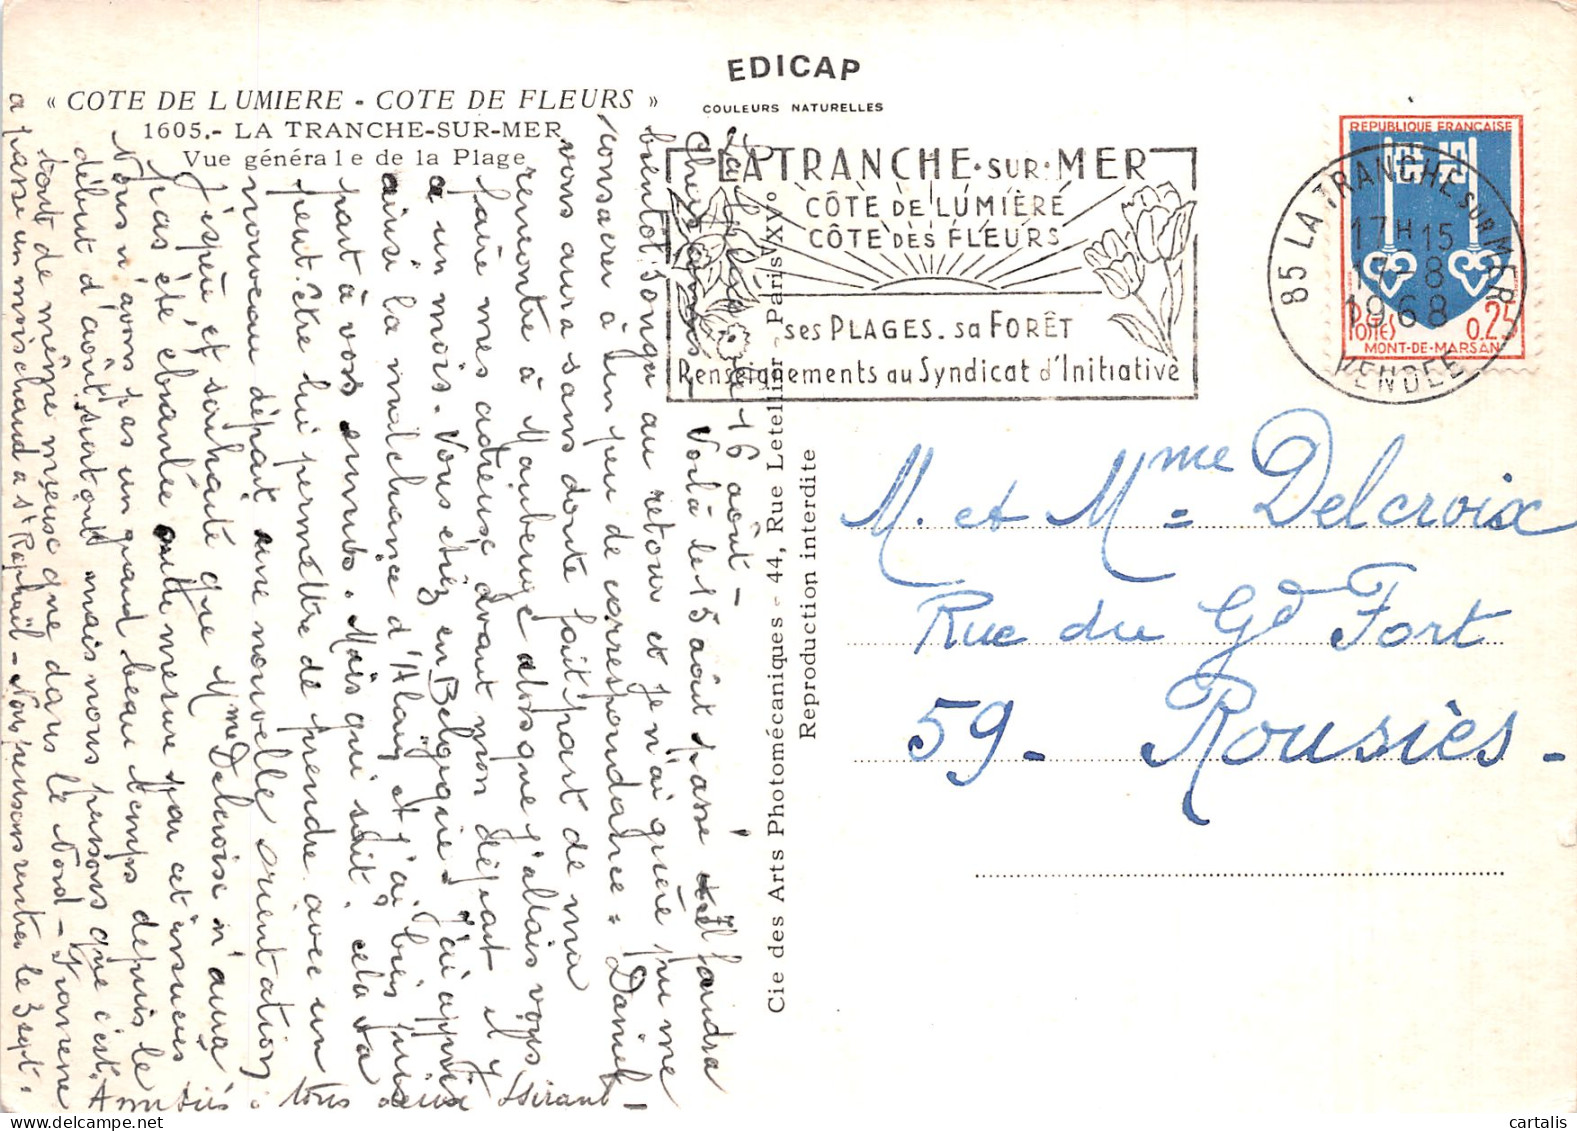 EDICAP
COULEURS NATURELLES
« COTE DE LUMIERE - COTE DE FLEURS »
1605.- LA TRANCHE-SUR-MER
Vue générale de la Plage
LA TRANCHE·SUR·MER
CÔTE DE LUMIÈRE
CÔTE DES FLEURS
ses PLAGES. sa FORÊT
Renseignements au Syndicat d'Initiative
REPUBLIQUE FRANÇAISE
POSTES 0.25
MONT-DE-MARSAN
85 LA TRANCHE SUR MER
17H15
17-8
1968
VENDEE
Cie des Arts Photomécaniques - 44, Rue Letellier - Paris XV°
Reproduction interdite
M. et Mme Delcroix
Rue du Gd Fort
59 - Rousies -
16 août -
Chers amis - Voilà le 15 août passé Il faudra
bientôt songer au retour et je n'ai guère pu me
consacrer à un peu de correspondance. Daniel
vous aura sans doute fait part de ma
rencontre à Maubeuge alors que j'allais vous
faire mes adieux avant mon départ il y
a un mois. Vous étiez en Belgique. J'ai appris
ainsi la malchance d'Alain et j'ai bien pris
part à vos ennuis. Mais qui sait, cela va
peut-être lui permettre de prendre avec un
nouveau départ une nouvelle orientation
J'espère et souhaite que Mme Delcroix n'aura
pas été ébranlée outre mesure par cet
Nous n'avons pas un grand beau temps depuis le
début d'août surtout mais nous pensons que c'est
tout de même mieux que dans le Nord -
a passé un mois chaud à St Raphaël - Nous pensons rentrer le 3 sept.
Amitiés. Tous deux